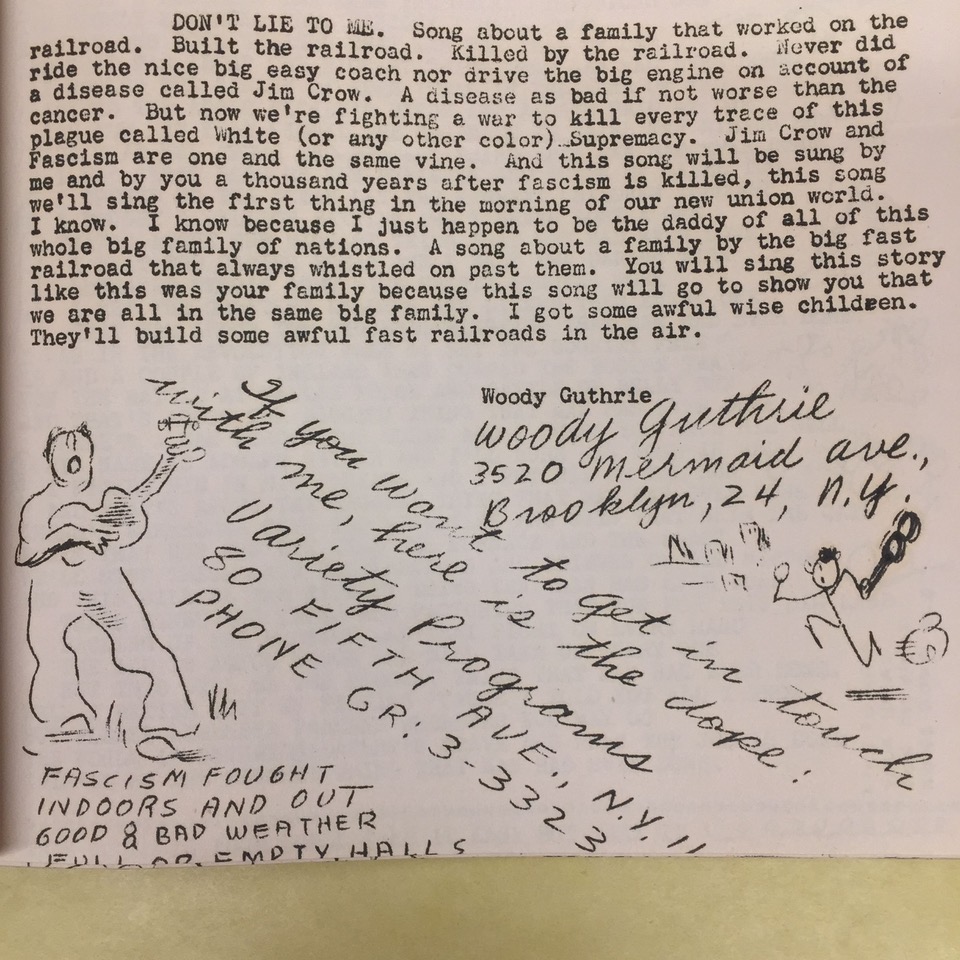 DON'T LIE TO ME. Song about a family that worked on the
railroad. Built the railroad. Killed by the railroad. Never did
ride the nice big easy coach nor drive the big engine on account of
a disease called Jim Crow. A disease as bad if not worse than the
cancer. But now we're fighting a war to kill every trace of this
plague called White (or any other color) Supremacy. Jim Crow and
Fascism are one and the same vine. And this song will be sung by
me and by you a thousand years after fascism is killed, this song
we'll sing the first thing in the morning of our new union world.
I know. I know because I just happen to be the daddy of all of this
whole big family of nations. A song about a family by the big fast
railroad that always whistled on past them. You will sing this story
like this was your family because this song will go to show you that
we are all in the same big family. I got some awful wise children.
They'll build some awful fast railroads in the air.
Woody Guthrie
Woody Guthrie
3520 Mermaid ave.,
Brooklyn, 24, N.Y.
If you want to get in touch
with me, here is the dope:
Variety Programs
80 FIFTH AVE., N.Y. 11
PHONE GR. 3-3323
FASCISM FOUGHT
INDOORS AND OUT
GOOD & BAD WEATHER
FULL OR EMPTY HALLS